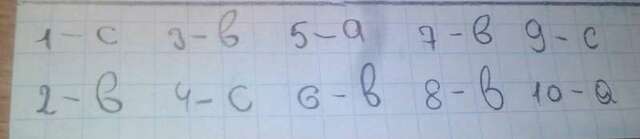 1 – c 3 – в 5 – а 7 – в 9 – c
2 – в 4 – c 6 – в 8 – в 10 – а